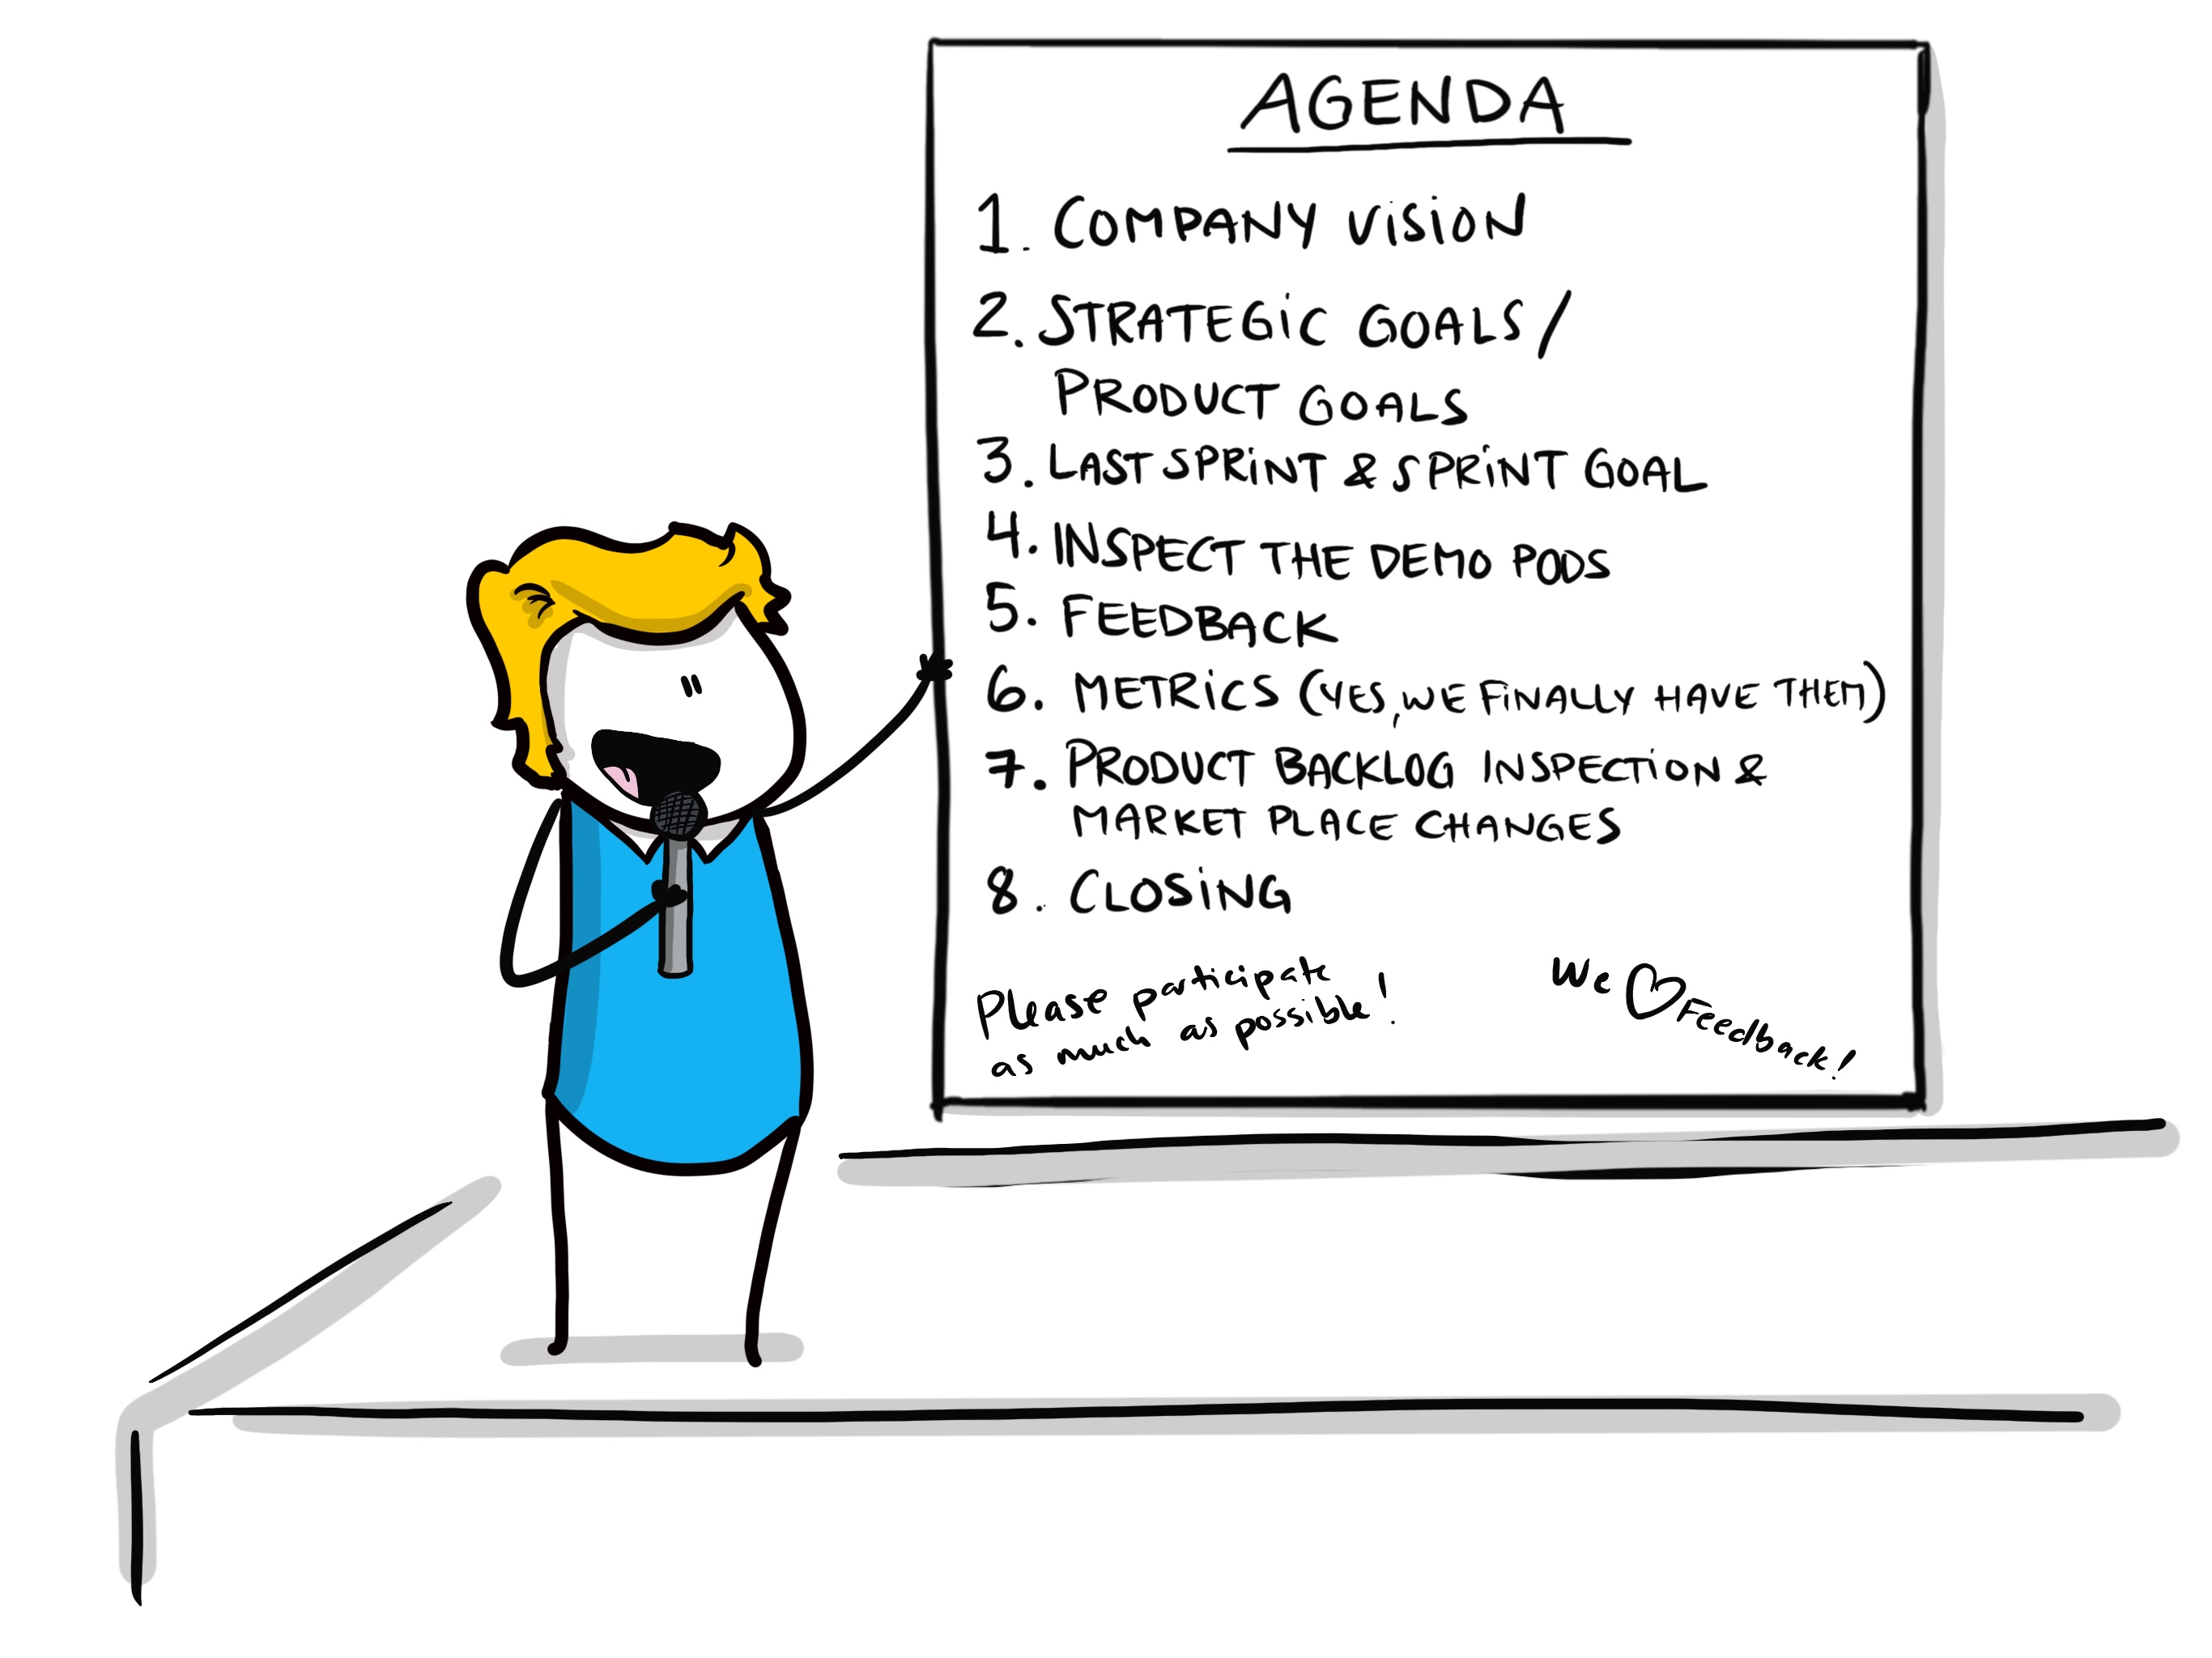 AGENDA
1. COMPANY VISION
2. STRATEGIC GOALS/
PRODUCT GOALS
3. LAST SPRINT & SPRINT GOAL
4. INSPECT THE DEMO PODS
5. FEEDBACK
6. METRICS (YES, WE FINALLY HAVE THEM)
7. PRODUCT BACKLOG INSPECTION &
MARKET PLACE CHANGES
8. CLOSING
Please participate
as much as possible!
We ♡ Feedback!